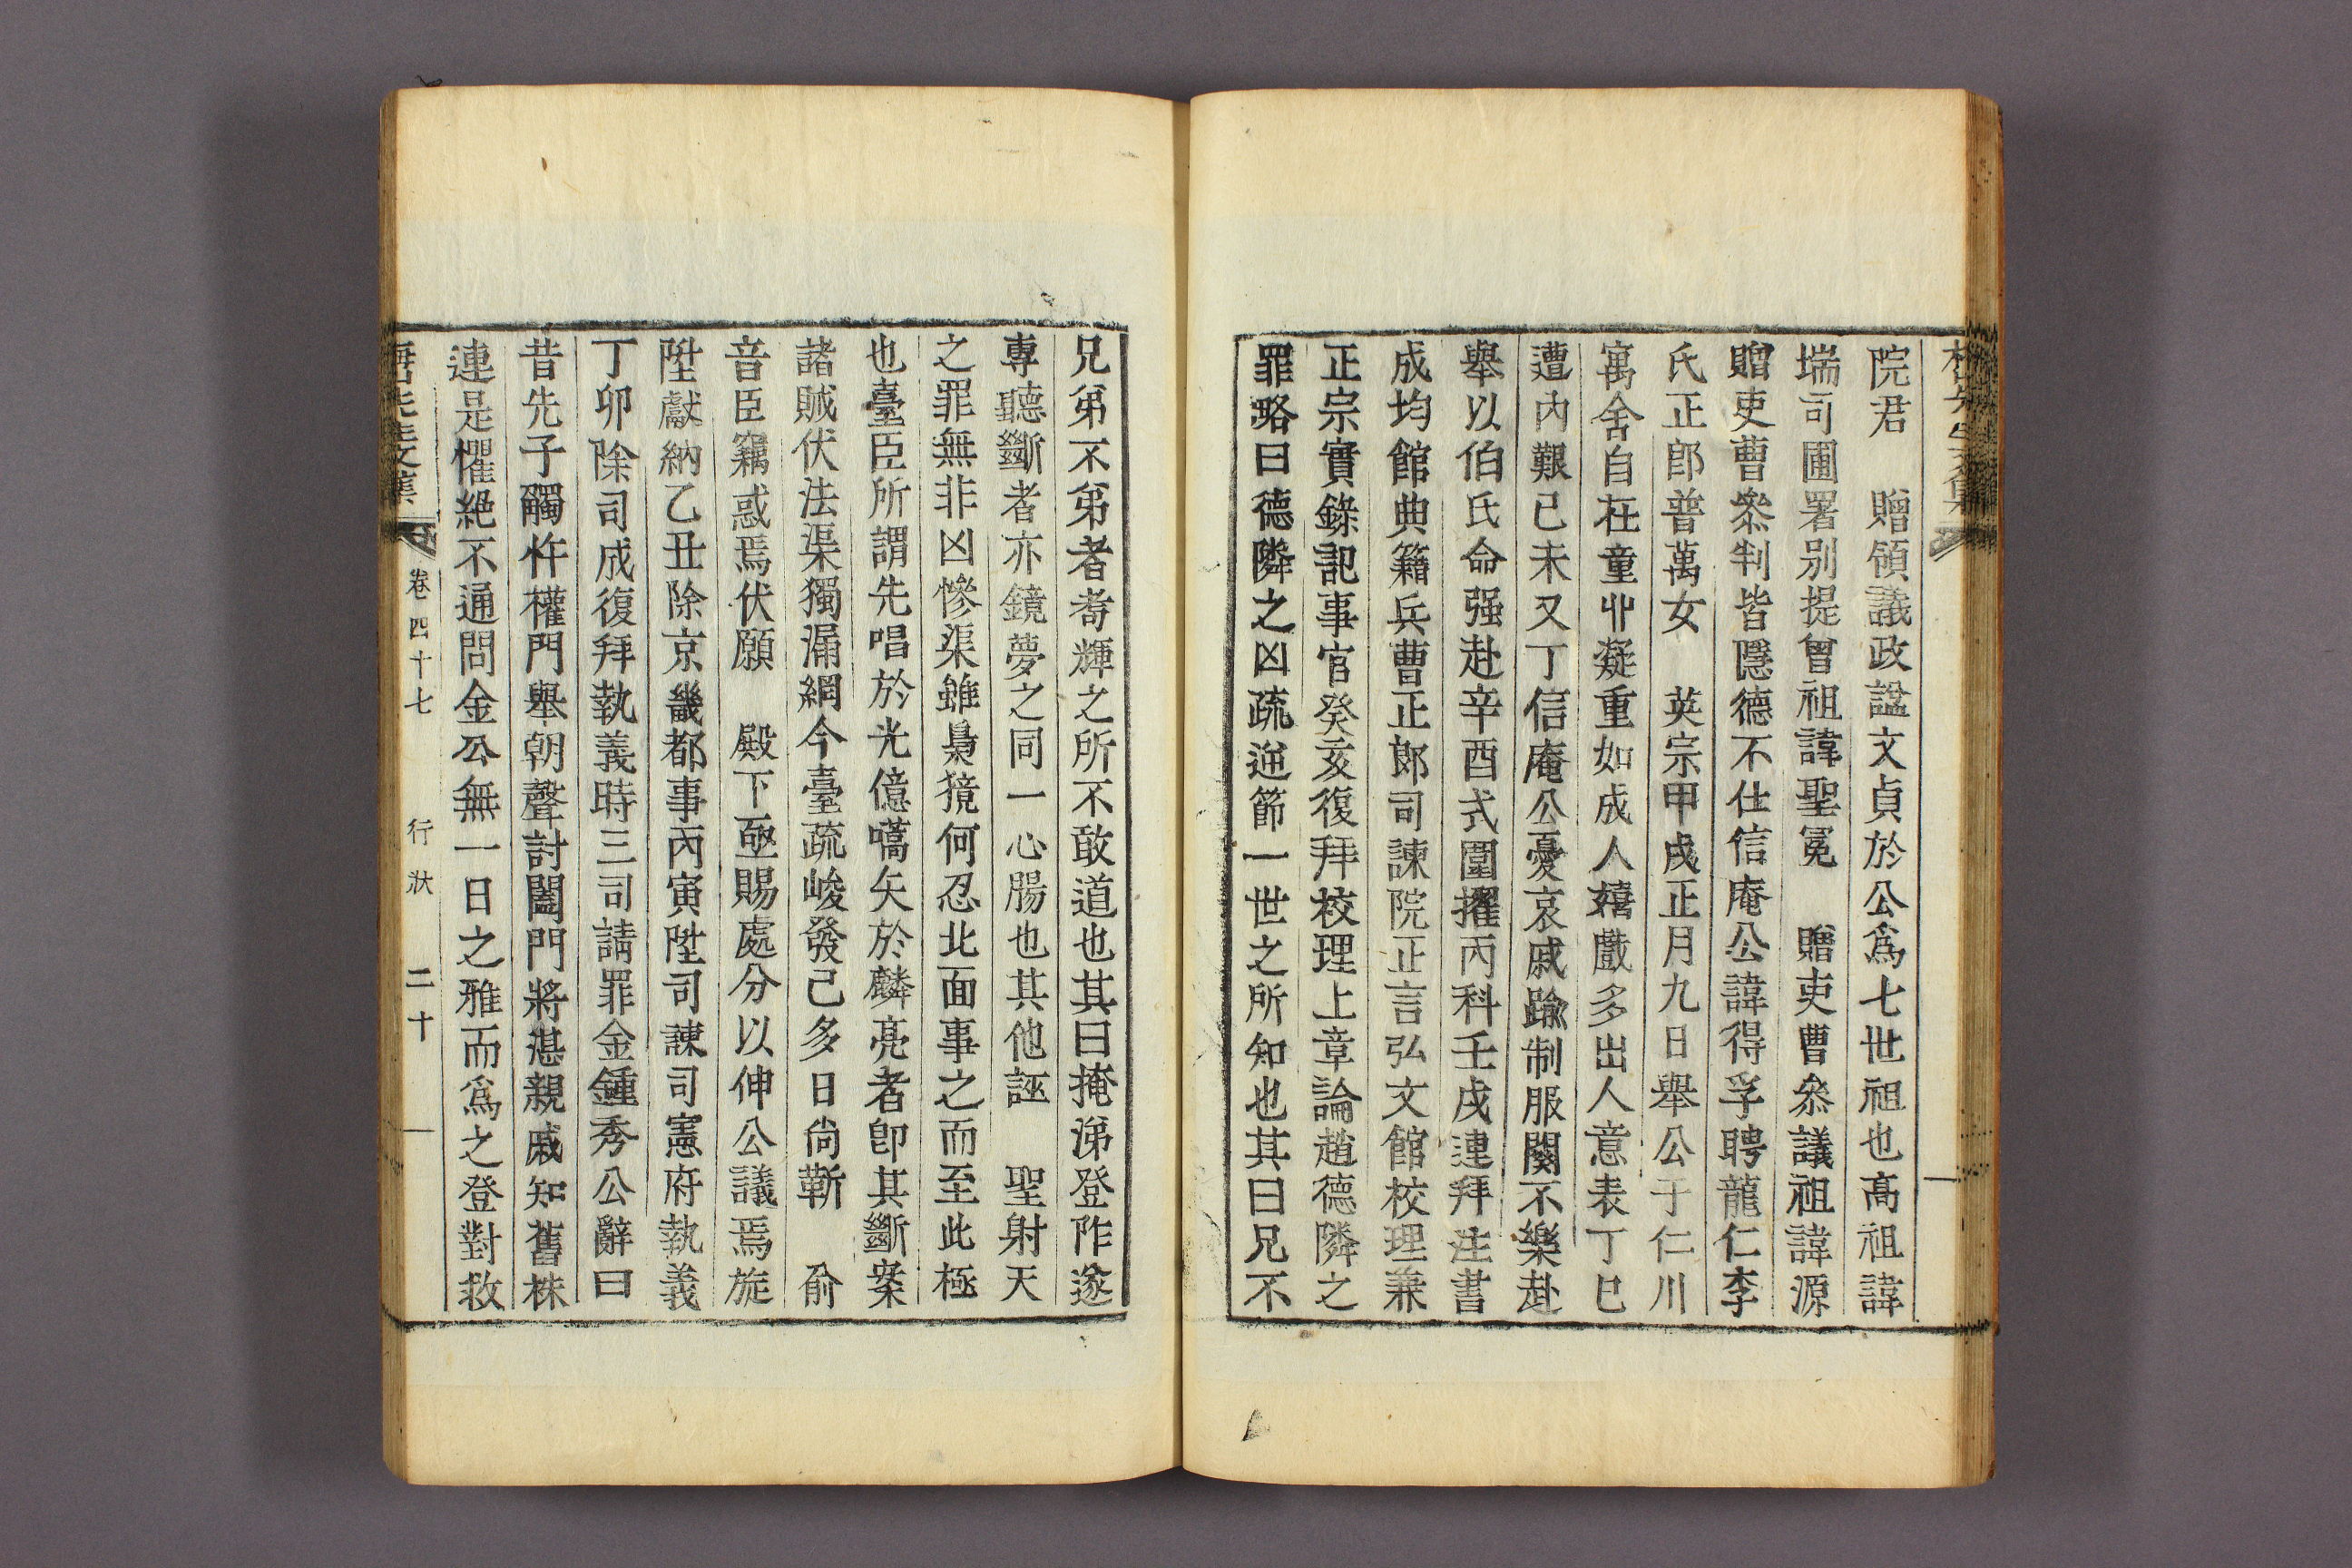 院君 贈領議政諡文貞於公爲七世祖也高祖諱
瑞司圃署别提曾祖諱聖冕 贈吏曹叅議祖諱源
贈吏曹叅判皆隱德不仕信庵公諱得孚聘龍仁李
氏正郎普萬女 英宗甲戌正月九日舉公于仁川
寓舍自在童丱凝重如成人嬉戲多出人意表丁巳
遭內艱己未又丁信庵公憂哀戚踰制服闋不樂赴
舉以伯氏命强赴辛酉式圍擢丙科壬戌連拜注書
成均館典籍兵曹正郎司諫院正言弘文館校理兼
正宗實錄記事官癸亥復拜校理上章論趙德隣之
罪略曰德隣之凶疏逆節一世之所知也其曰兄不
兄弟不弟者耉輝之所不敢道也其曰掩涕登阼遂
專聽斷者亦鏡夢之同一心腸也其他誣 聖射天
之罪無非凶慘渠雖梟獍何忍北面事之而至此極
也臺臣所謂先唱於光億嚆矢於麟亮者卽其斷案
諸賊伏法渠獨漏網今臺疏峻發已多日尙靳 兪
音臣竊惑焉伏願 殿下亟賜處分以伸公議焉旋
陞獻納乙丑除京畿都事丙寅陞司諫司憲府執義
丁卯除司成復拜執義時三司請罪金鍾秀公辭曰
昔先子觸忤權門舉朝聲討闔門將湛親戚知舊株
連是懼絶不通問金公無一日之雅而爲之登對救
先生文集 卷四十七 行狀 二十